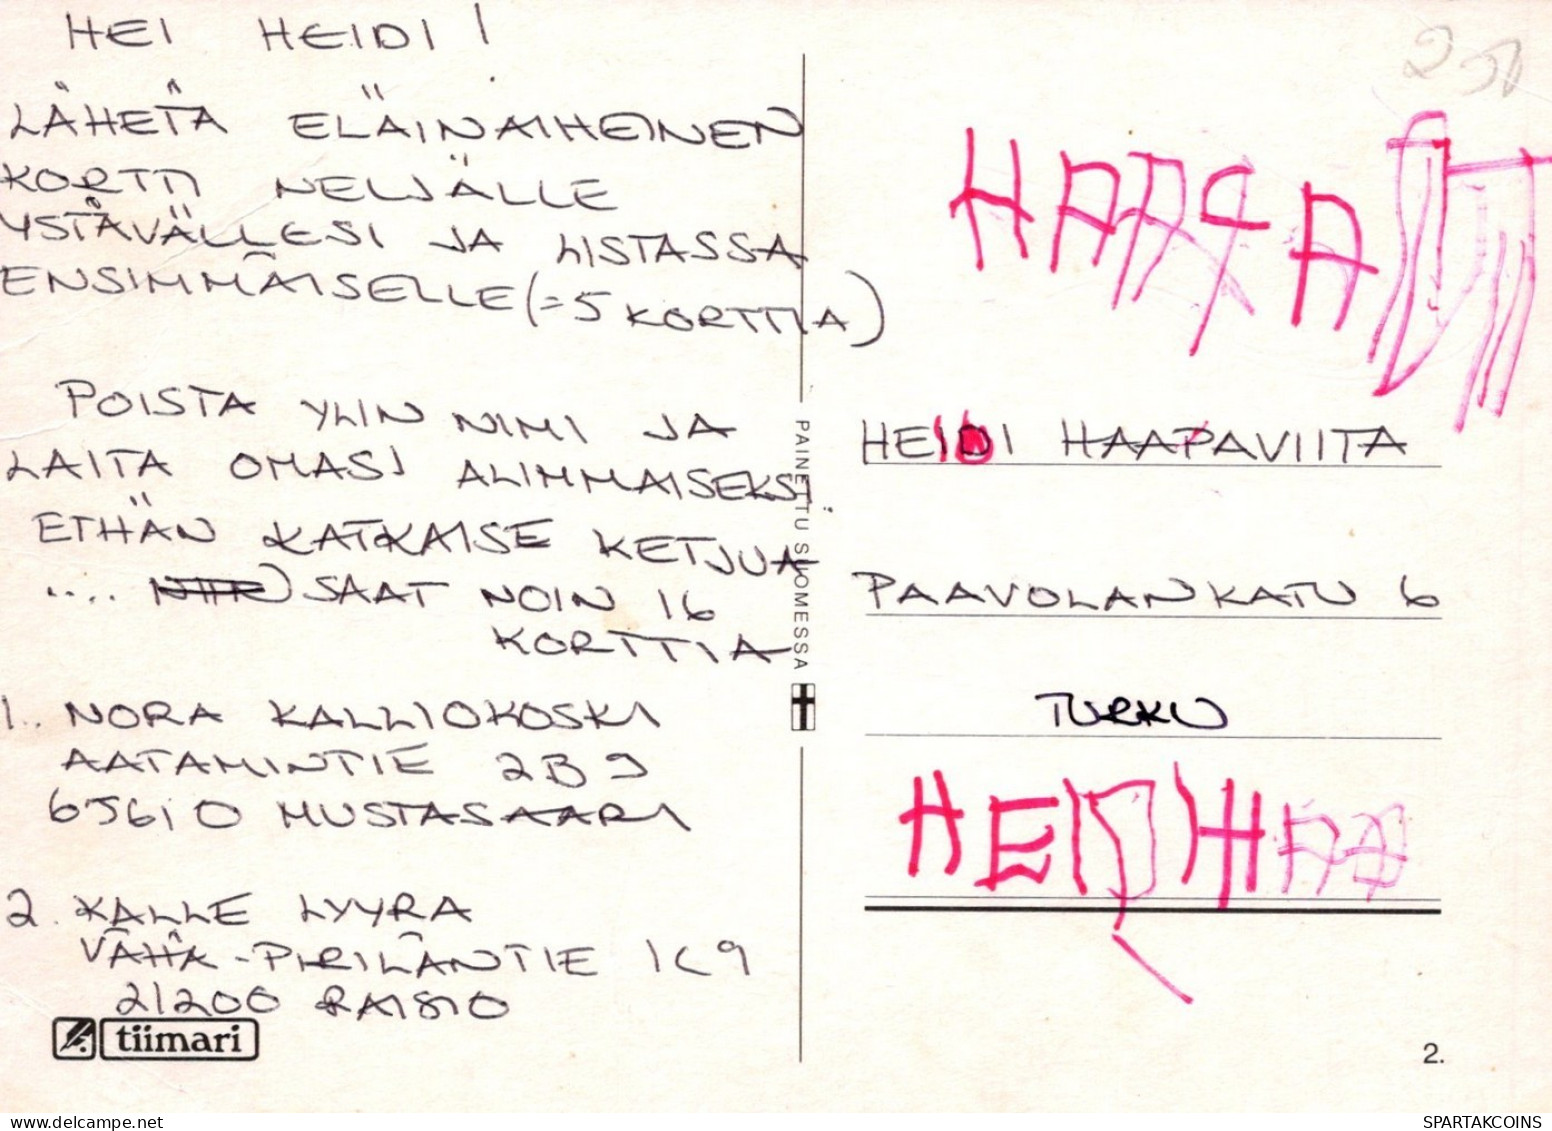 HEI HEIDI!
LÄHETÄ ELÄINAIHEINEN
KORTTI NELJÄLLE
YSTÄVÄLLESI JA LISTASSA
ENSIMMÄISELLE (=5 KORTTIA)
POISTA YLIN NIMI JA
LAITA OMASI ALIMMAISEKSI
ETHÄN KATKAISE KETJUA
.... NIIN SAAT NOIN 16
KORTTIA
1. NORA KALLIOKOSKI
AATAMINTIE 2B9
65610 MUSTASAARI
2. KALLE LYYRA
VÄHÄ-PIRILÄNTIE 1C9
21200 RAISIO
tiimari
PAINETTU SUOMESSA
HEIDI HAAPAVIITA
PAAVOLANKATU 6
TURKU
2.
SPARTAKCOINS